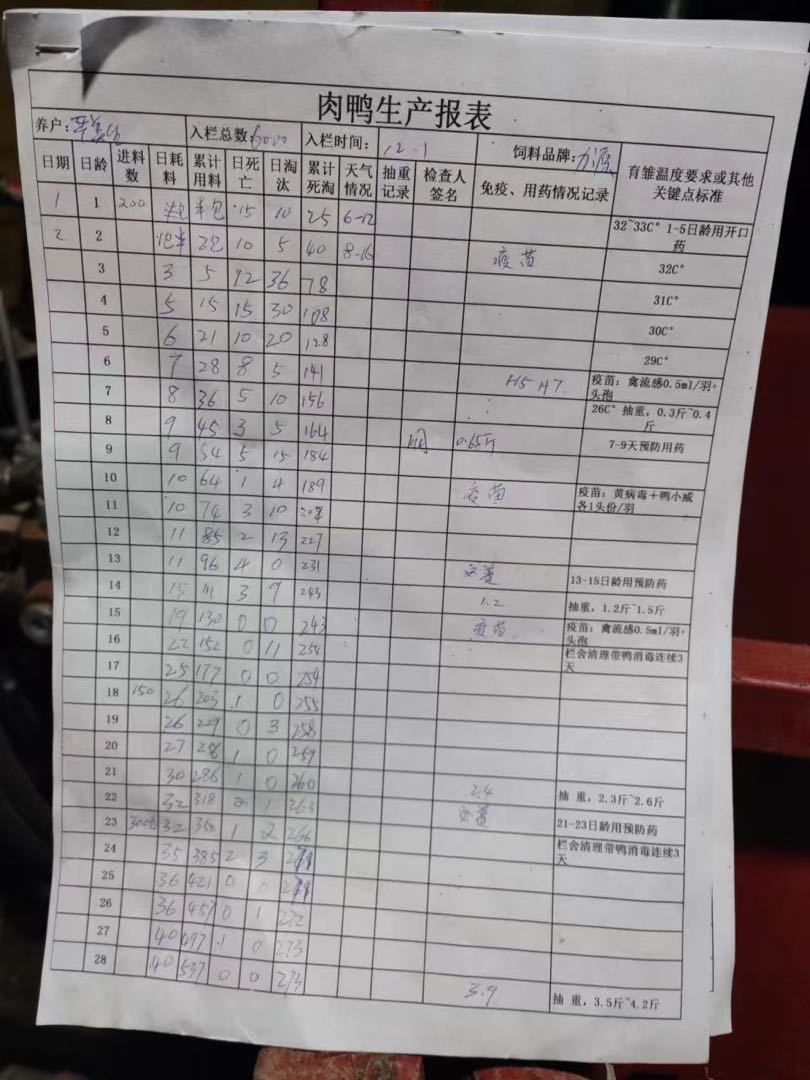 肉鸭生产报表
养户: 入栏总数:6000 入栏时间: 12.1 饲料品牌:
日期 日龄 进料数 日耗料 累计用料 日死亡 日淘汰 累计死淘 天气情况 抽重记录 检查人签名 免疫、用药情况记录 育雏温度要求或其他关键点标准
1 1 200 半包 半包 15 10 25 6-12 32~33C° 1-5日龄用开口药
2 2 2包 10 5 40 8-16 疫苗 32C°
3 3 5 12 36 78 31C°
4 5 15 15 30 108 30C°
5 6 21 10 20 128 29C°
6 7 28 8 5 141 H5 H7 疫苗: 禽流感0.5ml/羽+头孢
7 8 36 5 10 156 26C° 抽重, 0.3斤~0.4斤
8 9 45 3 5 164 0.65斤 7-9天预防用药
9 9 54 5 15 184
10 10 64 1 4 189 疫苗 疫苗: 黄病毒+鸭小威各1头份/羽
11 10 74 3 10
12 11 85 2 13 227
13 11 96 4 0 231 13-15日龄用预防药
14 15 111 3 9 243 1.2 抽重, 1.2斤~1.5斤
15 19 130 0 0 243 疫苗 疫苗: 禽流感0.5ml/羽+头孢
16 22 152 0 11 254 栏舍清理带鸭消毒连续3天
17 25 177 0 0 254
18 150 26 203 1 0 255
19 26 229 0 3 258
20 27 256 1 0 259
21 30 286 1 0 260 2.4 抽 重, 2.3斤~2.6斤
22 32 318 2 1 263 21-23日龄用预防药
23 300包 32 350 1 2 266 栏舍清理带鸭消毒连续3天
24 35 385 2 3
25 36 421 0 0
26 36 457 0 1 272
27 40 497 1 0 273
28 40 537 0 0 273 3.9 抽 重, 3.5斤~4.2斤